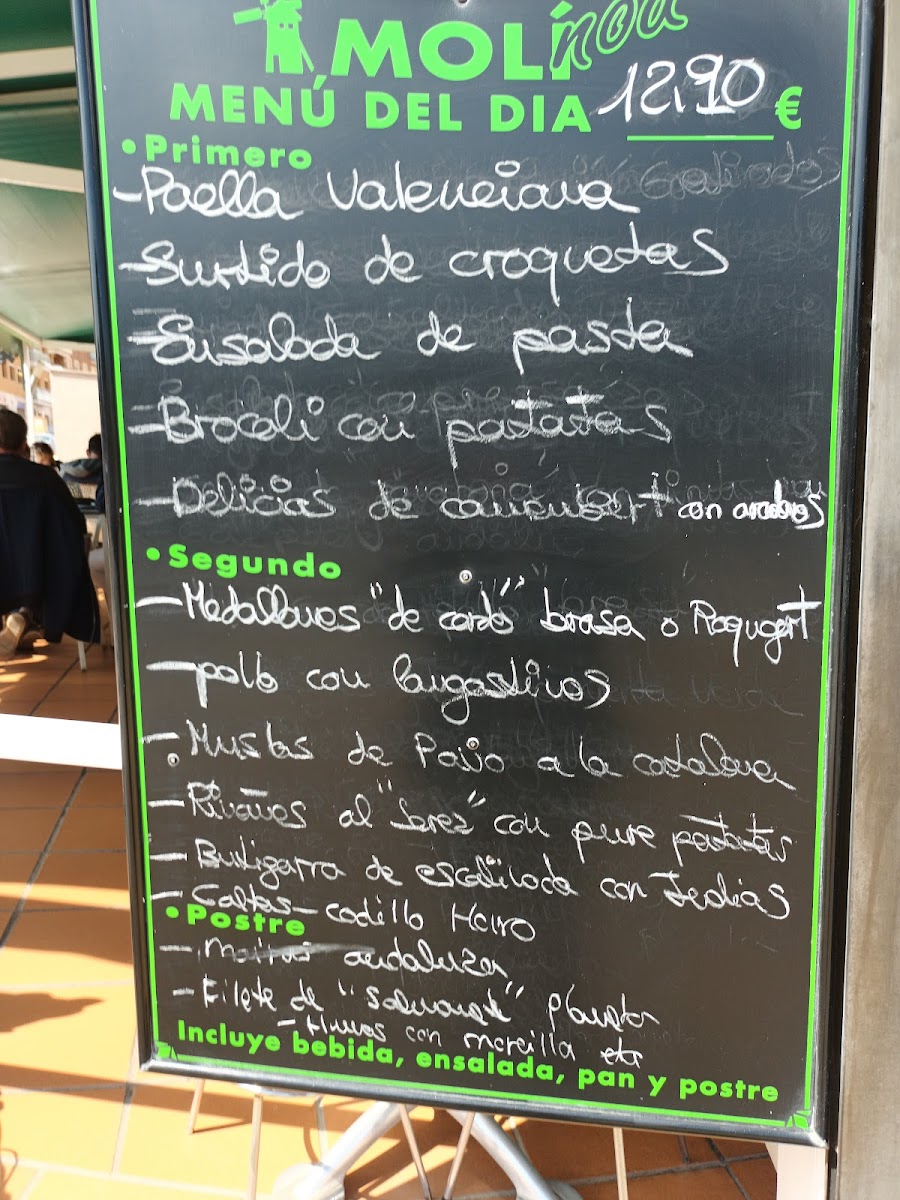 MOLÍnou
MENÚ DEL DIA 12,90 €
• Primero
- Paella Valenciana
- Surtido de croquetas
- Ensalada de pasta
- Brocoli con patatas
- Delicias de camembert con
• Segundo
- Medallones "de cerdo" brasa o Roquefort
- pollo con langostinos
- Muslos de Pavo a la catalana
- Riñones al "Serez" con pure patatas
- Butigarra de escalibada con Jedias
- Caltos - codillo Horno
• Postre
- andaluza
- Filete de "Salmonete" Plancha
- con morcilla etc
Incluye bebida, ensalada, pan y postre